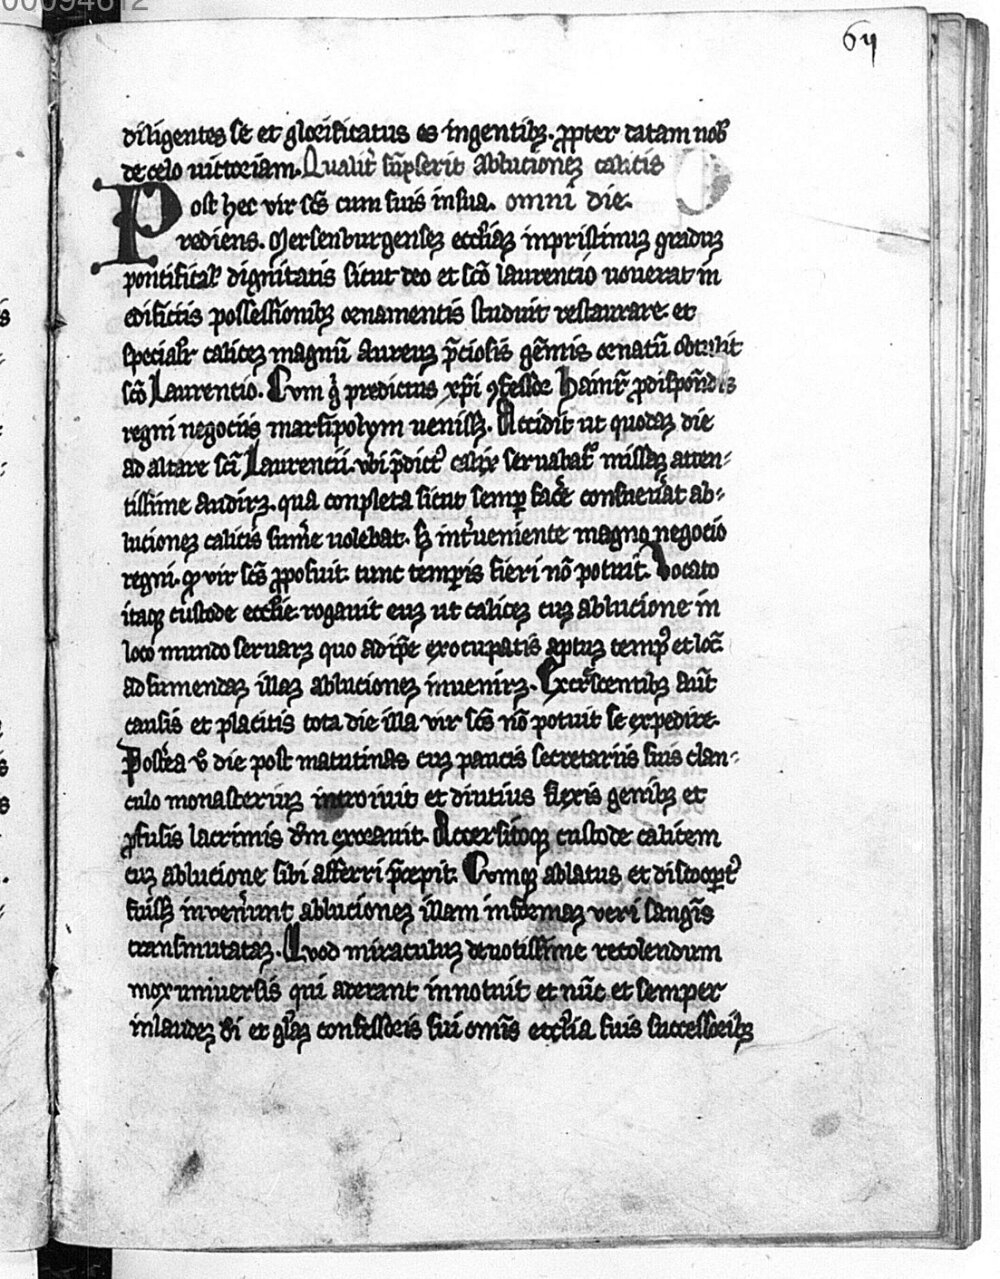 00094612
64
diligentes se et glorificatus es in gentibꝫ. ꝓpter datam nob̄
de celo uictoriam. Qualit͛ sūpserit ablucionē calicis
Post hec vir scs̄ cum suis in sua. omni die.
rediens. Mersenburgensē eccl̄iaꝫ in pristinuꝫ graduꝫ
pontifical᷒ dignitatis sicut deo et sc̄o laurencio uouerat in
edificiis possessionibꝫ ornamentis studuit restaurare. et
specialr̄ caliceꝫ magnū aureuꝫ p̄ciosis gēmis ornatū obtulit
sc̄o Laurencio. Cvm g̊ predictus xp̄i ꝯfessor hainr̄ ꝓ disponēdis
regni negociis marsipolym uenissꝫ. Accidit ut quodaꝫ die
ad altare sc̄i Laurencii. vbi p̄dict᷒ calix seruabat᷒ missaꝫ atten-
tissime audirꝫ. qua conpleta sicut semꝑ facͤ consueuͣat ab-
lucioneꝫ calicis sumͤe uolebat. sꝫ int͛ueniente magno negocio
regni. qͦ vir scs̄ ꝓposuit. tunc temꝑis fieri nō potuit. Vocato
itaqꝫ custode eccl̄ie rogauit euꝫ ut caliceꝫ cuꝫ ablucione in
loco mundo seruarꝫ quo adip̄e exoccupatis aptuꝫ temp᷒ et loc̄
ad sumendaꝫ illaꝫ ablucioneꝫ inuenirꝫ. Excrͤscentibꝫ aūt
causis et placitis tota die illa vir scs̄ nō potuit se expedire.
Post͛a ỽ die post matutinas cuꝫ paucis secretariis suis clan-
culo monasteriuꝫ introiuit et diutius flexis genibꝫ et
ꝓfusis lacrimis dm̄ exorauit. Accersitoqꝫ custode calicem
cuꝫ ablucione sibi afferri p̄cepit. Cvmqꝫ ablatus et discooꝑt᷒
fuissꝫ invenͤunt ablucioneꝫ illam in formaꝫ veri sangīs
transmutataꝫ. Qvod miraculuꝫ deuotissime recolendum
mox uniuersis qui aderant innotuit et nūc et semper
in laudeꝫ di̅ et gl̄aꝫ confessoris sui omīs eccl̄ia suis successoribꝫ